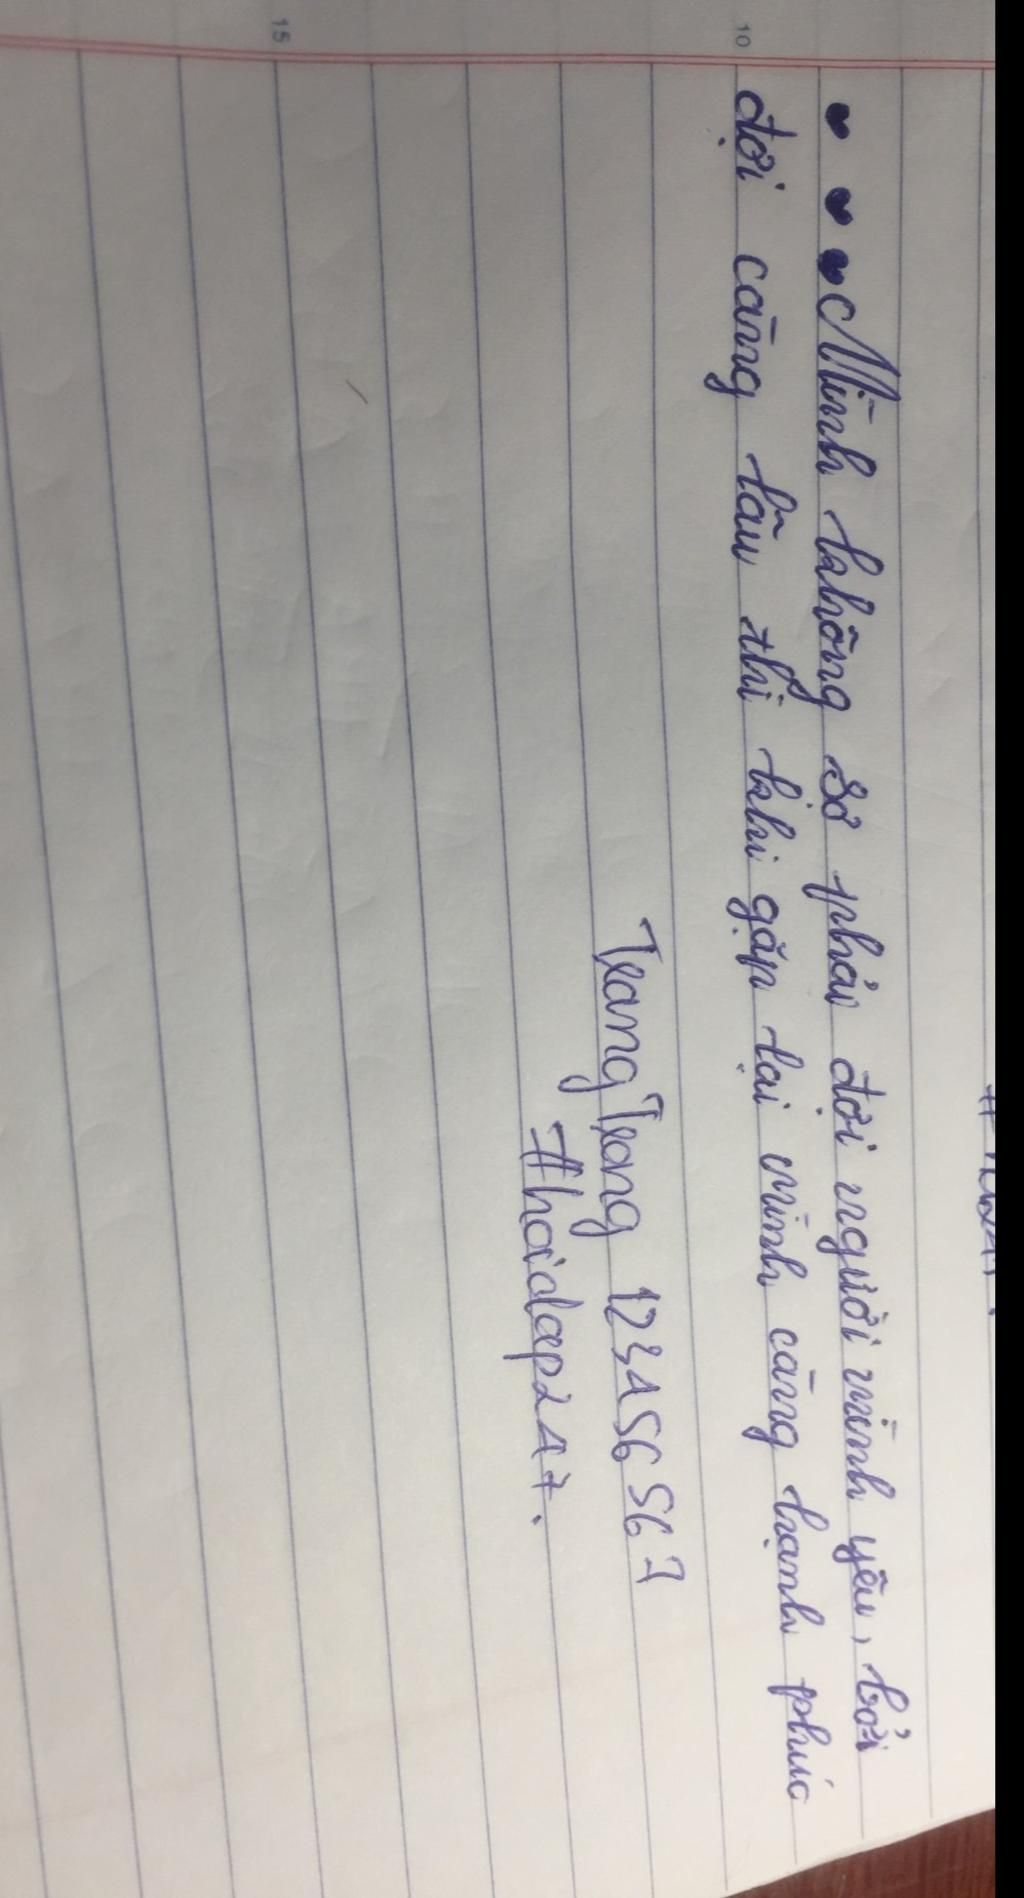 Mình không sợ phải đợi người mình yêu, bởi
đợi càng lâu thì khi gặp lại mình càng hạnh phúc
TrangTrang 123456 567
#hoidap247.
10
15